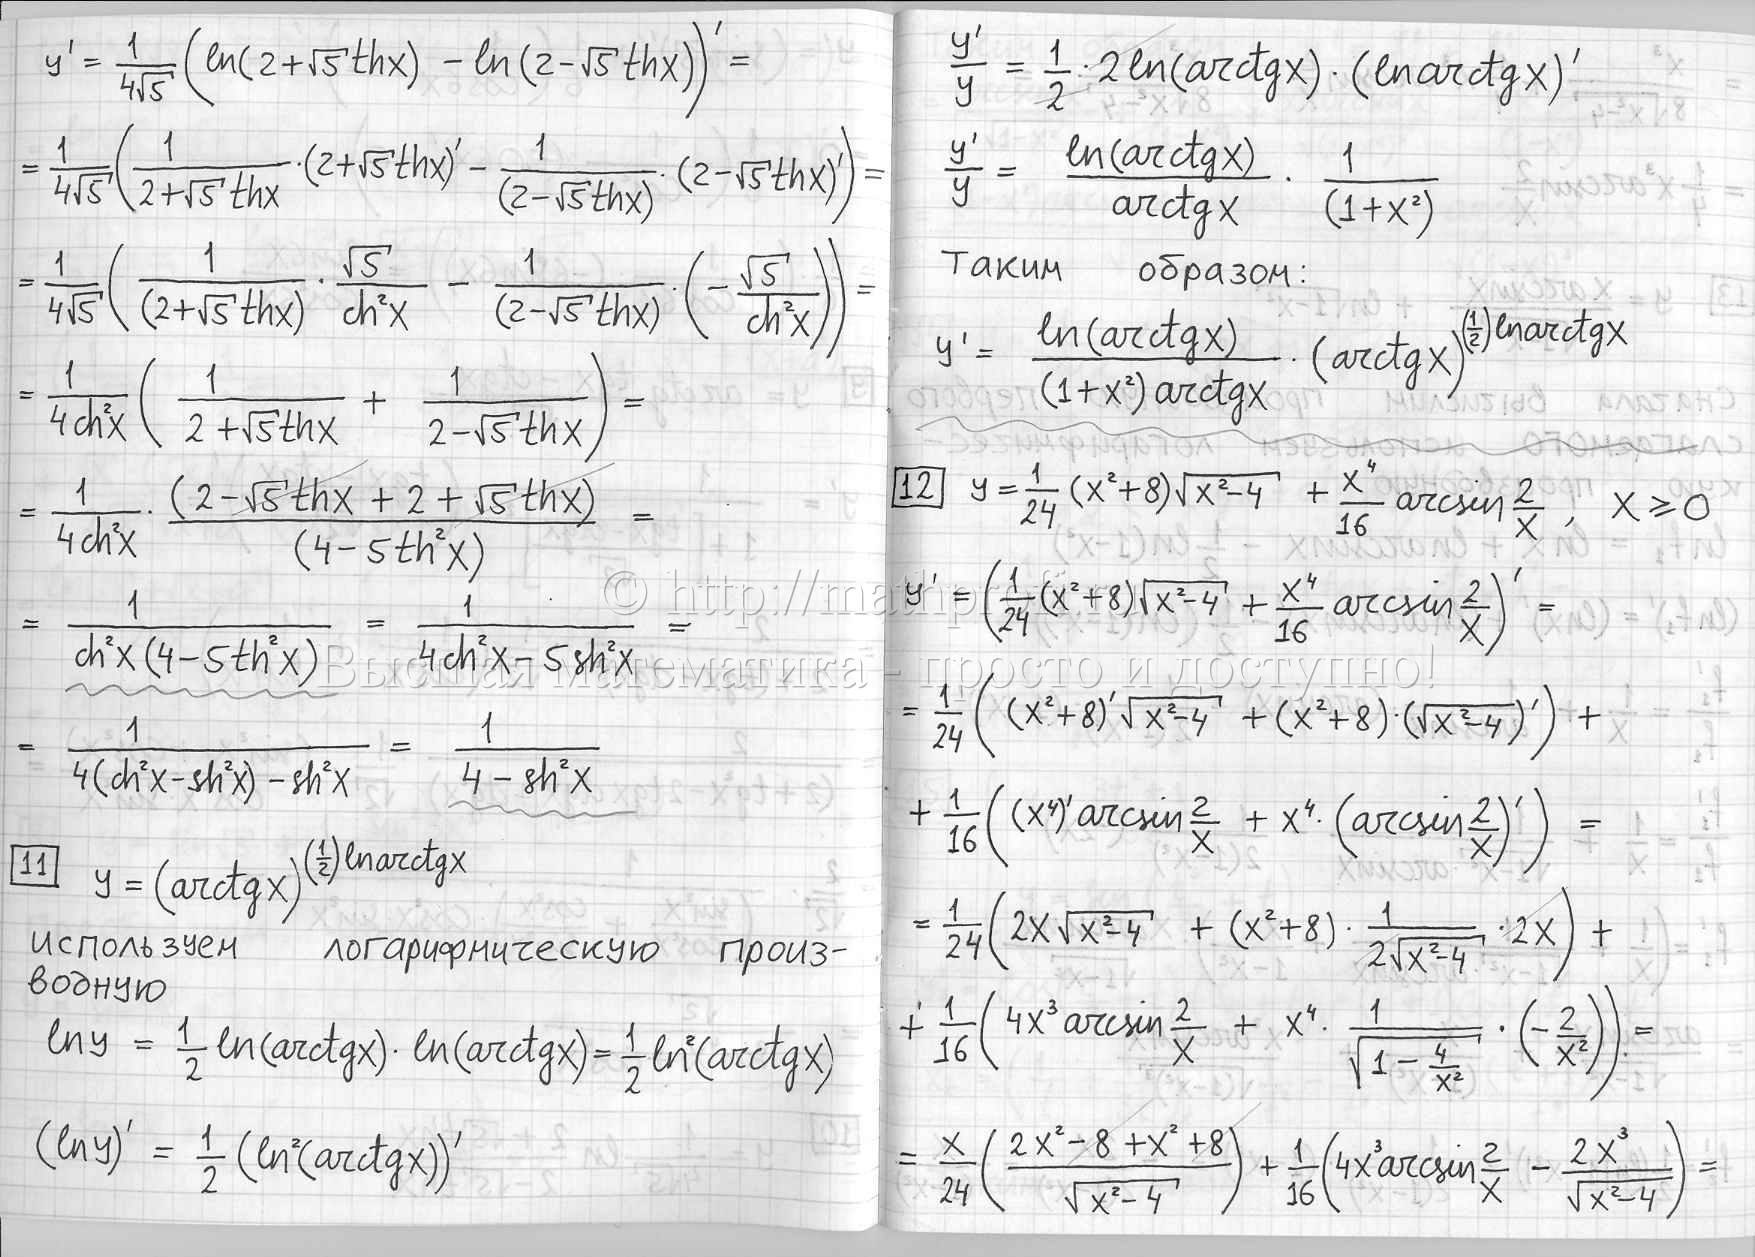 y' = 1/(4√5) (ln(2+√5 thx) − ln(2−√5 thx))' =
= 1/(4√5) (1/(2+√5 thx) · (2+√5 thx)' − 1/((2−√5 thx)) · (2−√5 thx)') =
= 1/(4√5) (1/((2+√5 thx)) · √5/(ch²x) − 1/((2−√5 thx)) · (−√5/(ch²x))) =
= 1/(4ch²x) (1/(2+√5 thx) + 1/(2−√5 thx)) =
= 1/(4ch²x) · (2−√5 thx + 2 + √5 thx)/((4−5th²x)) =
= 1/(ch²x(4−5th²x)) = 1/(4ch²x−5sh²x) =
= 1/(4(ch²x−sh²x)−sh²x) = 1/(4−sh²x)
11 y = (arctgx)^((1/2)lnarctgx)
используем логарифмическую произ-
водную
lny = 1/2 ln(arctgx)· ln(arctgx) = 1/2 ln²(arctgx)
(lny)' = 1/2 (ln²(arctgx))'
y'/y = 1/2 · 2ln(arctgx) · (lnarctgx)'
y'/y = ln(arctgx)/(arctgx) · 1/((1+x²))
Таким образом:
y' = ln(arctgx)/((1+x²)arctgx) · (arctgx)^((1/2)lnarctgx)
12 y = 1/24 (x²+8)√(x²−4) + x⁴/16 arcsin 2/x , x ≥ 0
y' = (1/24 (x²+8)√(x²−4) + x⁴/16 arcsin 2/x)' =
= 1/24 ((x²+8)'√(x²−4) + (x²+8)·(√(x²−4))') +
+ 1/16 ((x⁴)' arcsin 2/x + x⁴· (arcsin 2/x)') =
= 1/24 (2x√(x²−4) + (x²+8) · 1/(2√(x²−4)) · 2x) +
+ 1/16 (4x³ arcsin 2/x + x⁴· 1/√(1−4/x²) · (−2/x²)) =
= x/24 ((2x²−8+x²+8)/√(x²−4)) + 1/16 (4x³arcsin 2/x − 2x³/√(x²−4)) =
Высшая математика - просто и доступно!